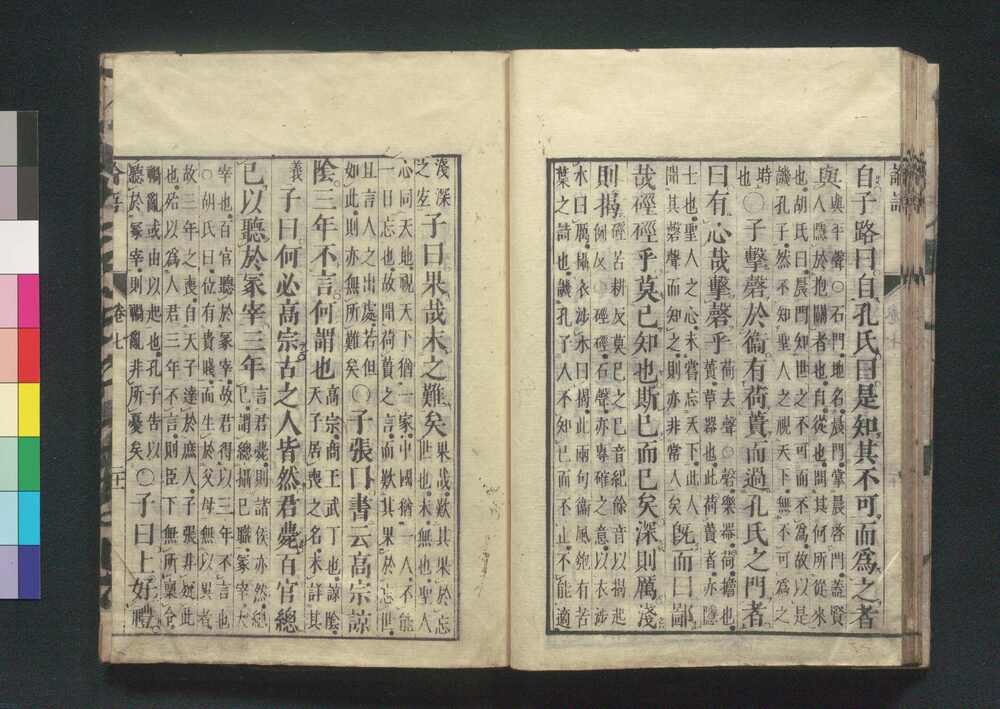 論語
自子路曰自孔氏曰是知其不可而爲之者
與
與平聲○石門地名晨門掌晨啓門蓋賢
人隱於抱關者也自從也問其何所從來
也胡氏曰晨門知世之不可而不爲故以是
譏孔子然不知聖人之視天下無不可爲之
時
也
○子擊磬於衞有荷蕢而過孔氏之門者
曰有心哉擊磬乎
荷去聲○磬樂器荷擔也
蕢草器也此荷蕢者亦隱
士也聖人之心未嘗忘天下此人
聞其磬聲而知之則亦非常人矣
既而曰鄙
哉硜硜乎莫己知也斯已而已矣深則厲淺
則揭
硜苦耕反莫己之己音紀餘音以揭起
例反○硜硜石聲亦專確之意以衣涉
水曰厲攝衣涉水曰揭此兩句衞風匏有苦
葉之詩也譏孔子人不知己而不止不能適
淺深
之宜
子曰果哉末之難矣
果哉歎其果於忘
世也末無也聖人
心同天地視天下猶一家中國猶一人不能
一日忘也故聞荷蕢之言而歎其果於忘世
且言人之出處若但
如此則亦無所難矣
○子張曰書云高宗諒
陰三年不言何謂也
高宗商王武丁也諒陰
天子居喪之名未詳其
義
子曰何必高宗古之人皆然君薨百官總
己以聽於冢宰三年
言君薨則諸侯亦然總
己謂總攝己職冢宰大
宰也百官聽於冢宰故君得以三年不言也
○胡氏曰位有貴賤而生於父母無以異者
故三年之喪自天子達於庶人子張非疑此
也殆以爲人君三年不言則臣下無所稟令
禍亂或由以起也孔子告以
聽於冢宰則禍亂非所憂矣
○子曰上好禮
論語
卷七